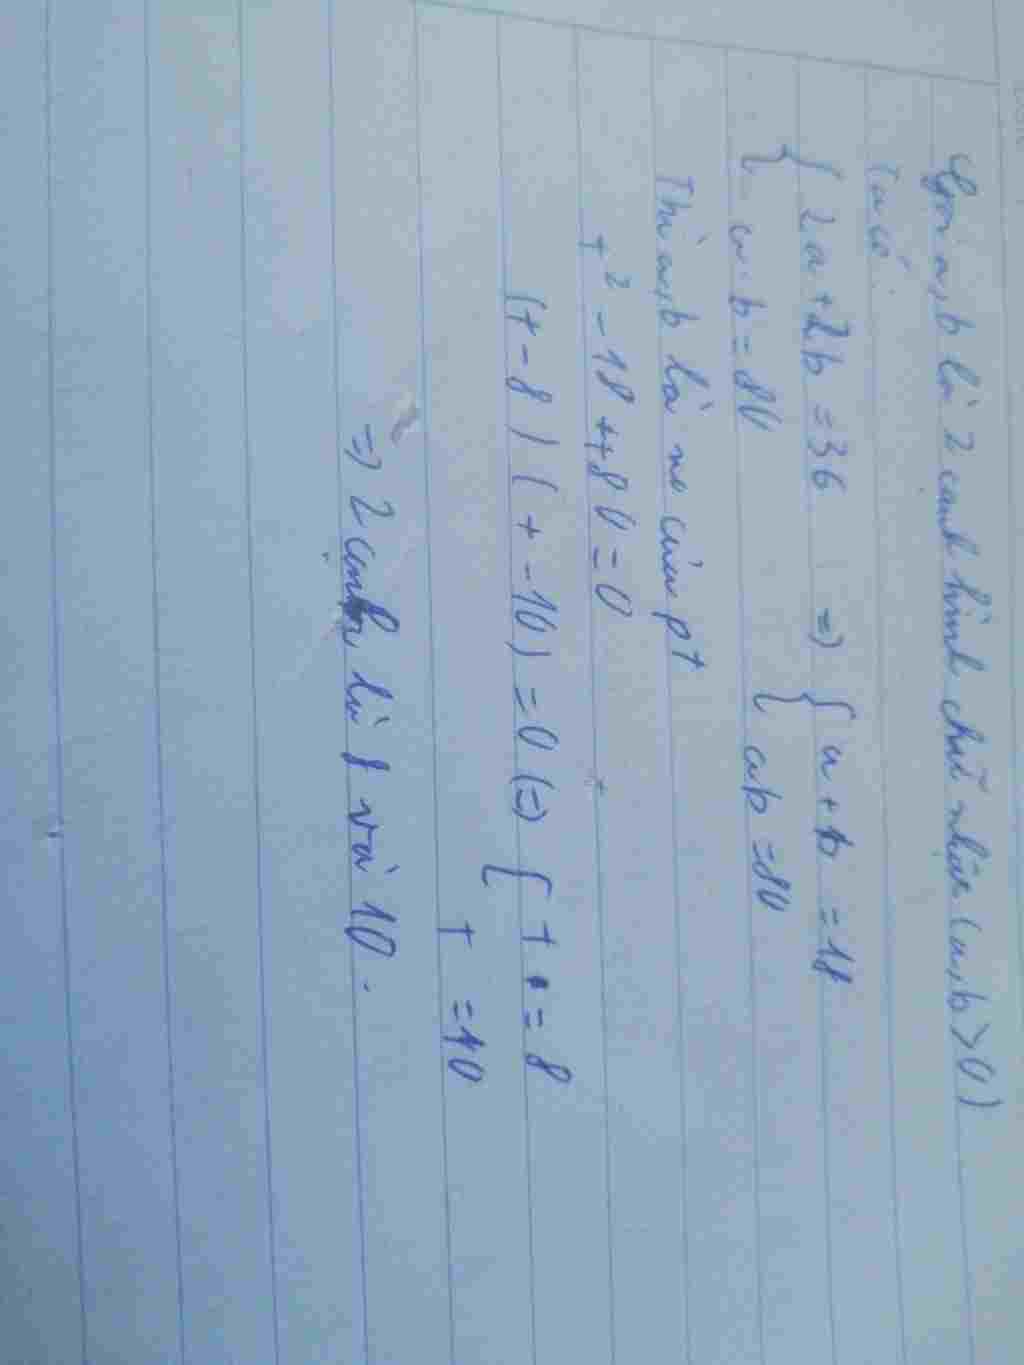 Gọi a,b là 2 cạnh hình chữ nhật (a,b > 0)
Ta có:
{ 2a + 2b = 36 => { a + b = 18
{ a.b = 80 { ab = 80
Thì a,b là no của pt
t² - 18t + 80 = 0
(t - 8)(t - 10) = 0 (=) [ t = 8
t = 10
=> 2 cạnh là 8 và 10.